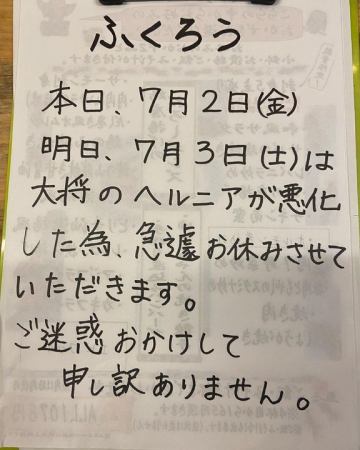 ふくろう
本日、7月2日(金)
明日、7月3日(土)は
大将のヘルニアが悪化
した為、急遽お休みさせて
いただきます。
ご迷惑おかけして
申し訳ありません。